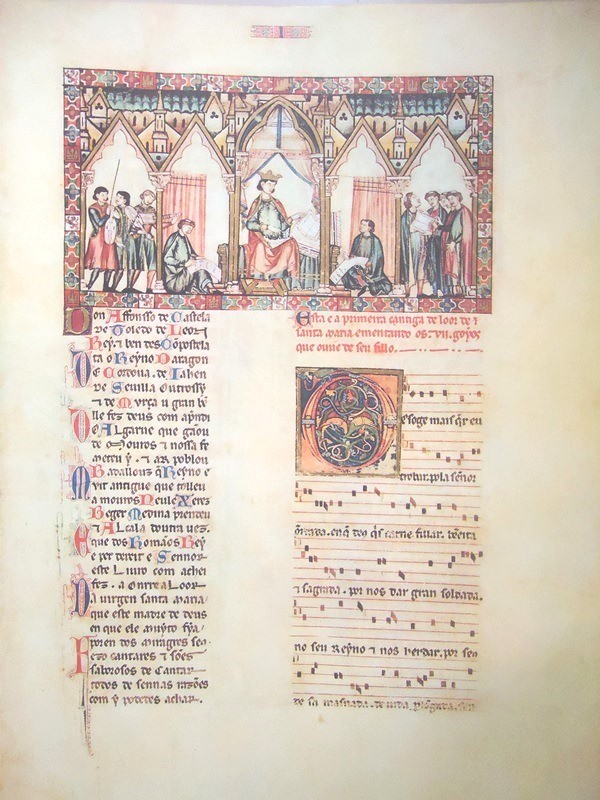 I
Don Affonsso de Castela
de Toledo de Leon
Rey ⁊ ben des Cõpostela
ta o Reyno Daragon
De Cordoua de Iahen
De Seuilla outrossy
⁊ de Murça u gran bẽ
lle fez deus com apndi
Do Algarue que gãou
de Mouros ⁊ nossa fe
meteu y . ⁊ ar poblou
Badallouz q̃ Reyno e
Muit antigue que tolleu
a mouros Neule Xerez
Beger Medina prendeu
⁊ Alcala doutra uez.
E que dos Romãos Rey
e per dereit e Sennor
este liuro com achei
fez . a Onrr e a Loor
Da uirgen santa maria
que este madre de deus
en que ele muyto fya
Poren dos miragres seus
Fezo cantares ⁊ sões
saborosos de Cantar
todos de sennas razões
com y podedes achar.
Esta e a primeira cantiga de loor de
santa maria ementando os .vii. goyos
que ouue de seu fillo.
Des oge mais q̃r eu
trobar. pola sẽnor
onrrada. en q̃ deo q̃s carne fillar. bẽeita
⁊ sagrada. por nos dar gran soldada.
no seu Reyno ⁊ nos herdar. por seus
de sa masnada. de uida plõgada. sen